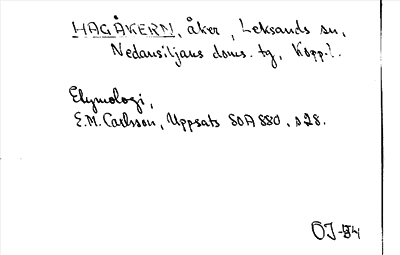 HAGÅKERN, åker, Leksands sn,
Nedansiljans doms. tg, Kopp. l.
Etymologi,
E.M. Carlsson, Uppsats SOA 880, s 28.
ÖJ-54